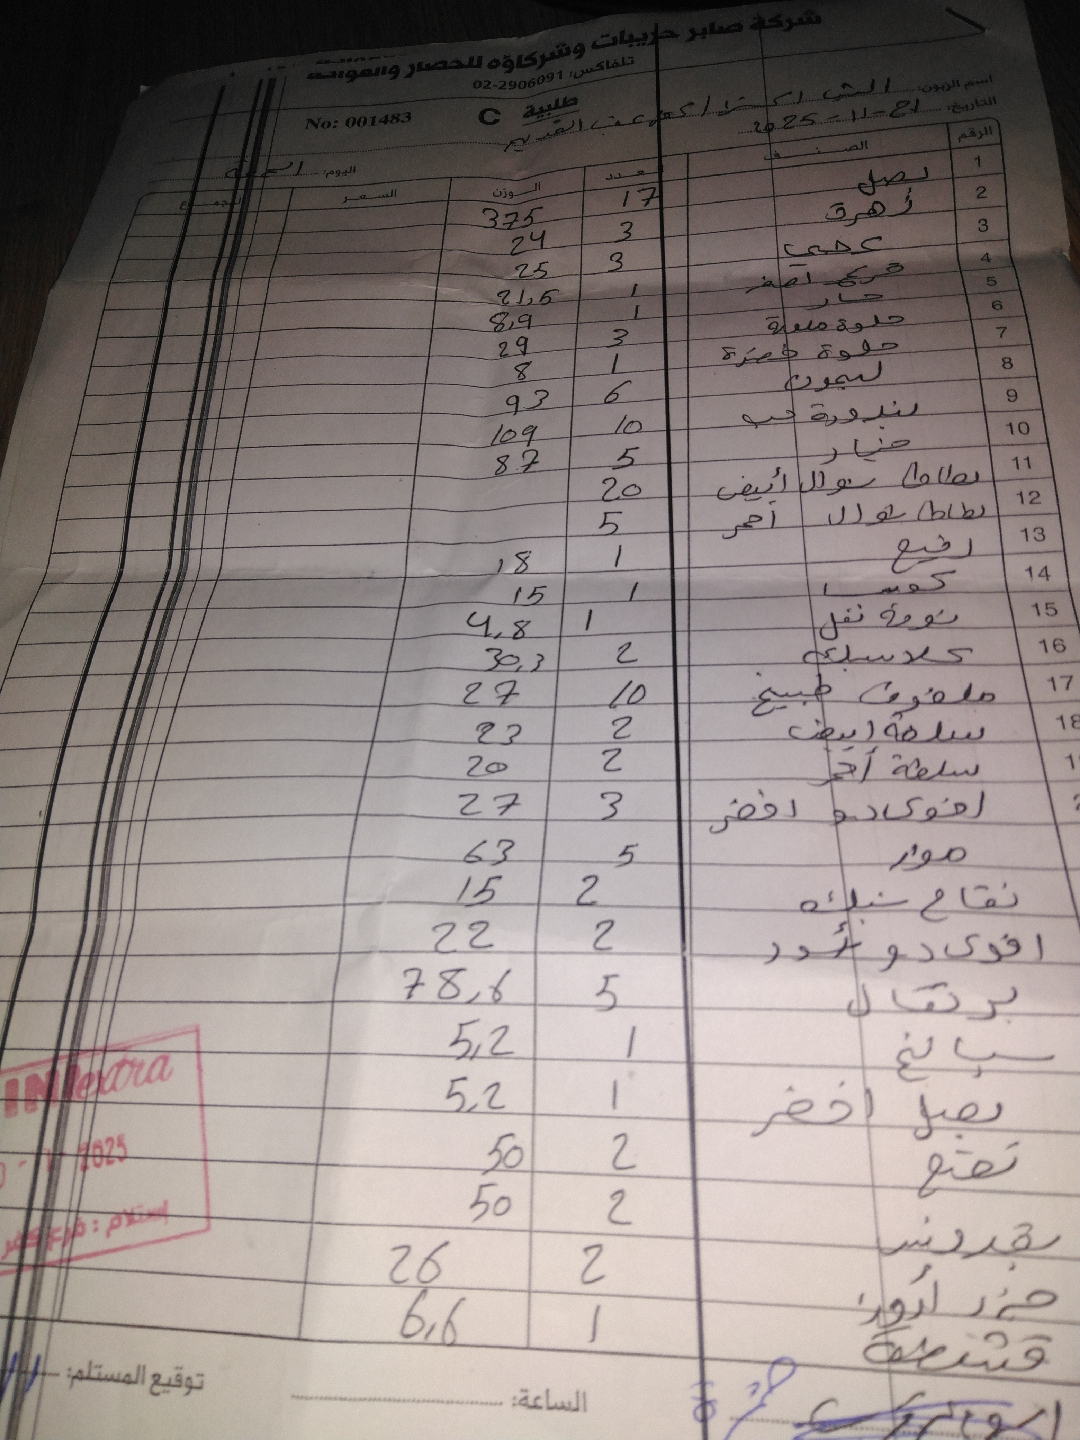 شركة صابر حريبات وشركاؤه للخضار والفواكه
تلفاكس: 02-2906091
No: 001483 طلبية C
اسم الزبون:
التاريخ: 21-11-2025
اليوم: الجمعة
الرقم الصنف العدد الوزن السعر المجموع
1 بصل 17 375
2 أزهرة 3 24
3 عجمي 3 25
4 قرع اصفر 1 21,5
5 حار 1 8,9
6 حلوة ملونة 3 29
7 حلوة خضرة 1 8
8 ليمون 6 93
9 بندورة حب 10 109
10 خيار 5 87
11 بطاطا شوال أبيض 20
12 بطاطا شوال أحمر 5
13 رفيع 1 18
14 كوسا 1 15
15 1 4,8
16 2 30,3
17 ملفوف طبيخ 10 27
18 سلطة ابيض 2 23
سلطة أحمر 2 20
افوكادو اخضر 3 27
موز 5 63
تفاح 2 15
افوكادو أسود 2 22
برتقال 5 78,6
سبانخ 1 5,2
بصل اخضر 1 5,2
نعنع 2 50
بقدونس 2 50
جزر 2 26
قشطة 1 6,6
INextra
2025
إستلام: فرع كفر
الساعة: توقيع المستلم: